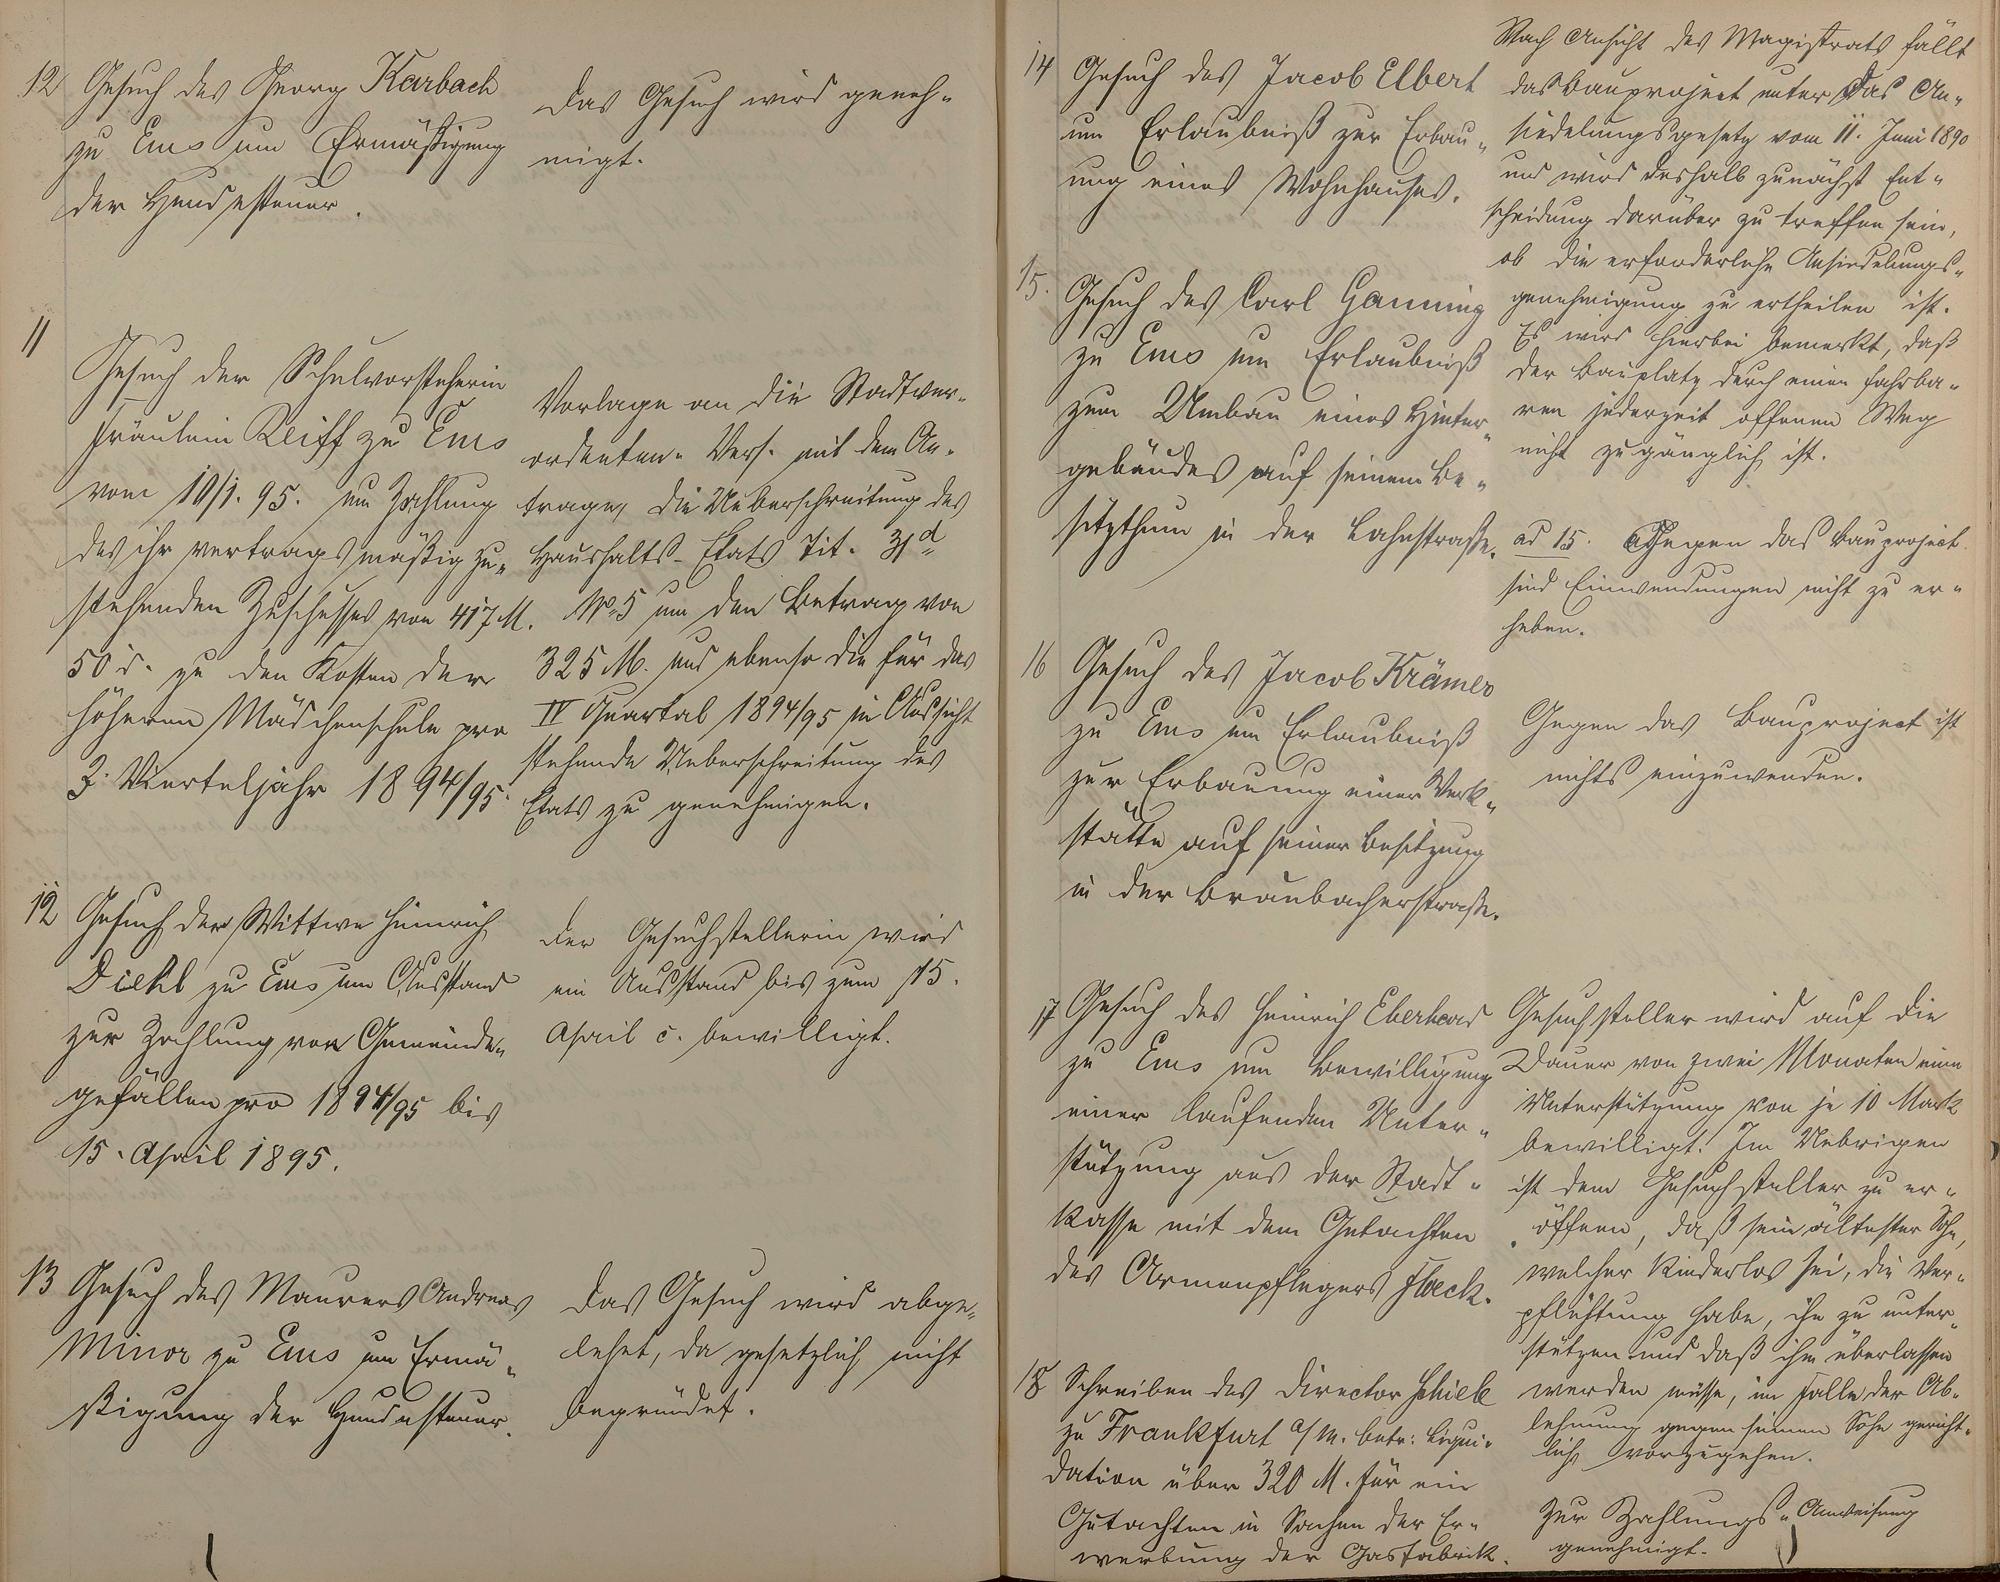 12 Gesuch des Georg Karbach
zu Ems um Ermäßigung
der Hundesteuer.
Das Gesuch wird geneh-
migt.
11
Gesuch der Schulvorsteherin
Fräulein Reiff zu Ems
vom 10/1. 95. um Zahlung
des ihr vertragsmäßig zu-
stehenden Zuschusses von 417 M.
50 d. zu den Kosten der
höheren Mädchenschule pro
3. Vierteljahr 1894/95.
Vorlage an die Stadtver-
ordneten-Vers. mit dem An-
trage, die Ueberschreitung des
Haushalts-Etats Tit. 31d
No 5 um den Betrag von
325 M. und ebenso die für das
IV Quartal 1894/95 in Aussicht
stehende Ueberschreitung des
Etats zu genehmigen.
12 Gesuch der Wittwe Heinrich
Diehl zu Ems um Ausstand
zur Zahlung von Gemeinde-
gefällen pro 1894/95 bis
15. April 1895.
Der Gesuchstellerin wird
ein Ausstand bis zum 15.
April c. bewilligt.
13 Gesuch des Maurers Andreas
Minor zu Ems um Ermä-
ßigung der Hundesteuer.
Das Gesuch wird abge-
lehnt, da gesetzlich nicht
begründet.
14 Gesuch des Jacob Elbert
um Erlaubniß zur Erbau-
ung eines Wohnhauses.
Nach Ansicht des Magistrats fällt
das Bauproject unter das An-
siedelungsgesetz vom 11. Juni 1890
und wird deshalb zunächst Ent-
scheidung darüber zu treffen sein,
ob die erforderliche Ansiedelungs-
genehmigung zu ertheilen ist.
Es wird hierbei bemerkt, daß
der Bauplatz durch einen fahrba-
ren jederzeit offenen Weg
nicht zugänglich ist.
15. Gesuch des Carl Ganning
zu Ems um Erlaubniß
zum Umbau eines Hinter-
gebäudes auf seinem Be-
sitzthum in der Lahnstraße.
ad 15. Gegen das Bauproject
sind Einwendungen nicht zu er-
heben.
16 Gesuch des Jacob Krämer
zu Ems um Erlaubniß
zur Erbauung einer Werk-
stätte auf seiner Besitzung
in der Braubacherstraße.
Gegen das Bauproject ist
nichts einzuwenden.
17 Gesuch des Heinrich Eberhard
zu Ems um Bewilligung
einer laufenden Unter-
stützung aus der Stadt-
kasse mit dem Gutachten
des Armenpflegers Floeck.
Gesuchsteller wird auf die
Dauer von zwei Monaten eine
Unterstützung von je 10 Mark
bewilligt. Im Uebrigen
ist dem Gesuchsteller zu er-
öffnen, daß sein ältester Sohn,
welcher kinderlos sei, die Ver-
pflichtung habe, ihn zu unter-
stützen und daß ihm überlassen
werden müsse, im Falle der Ab-
lehnung gegen seinen Sohn gericht-
lich vorzugehen.
18 Schreiben des Director Schiele
zu Frankfurt a/M. betr: Liqui-
dation über 320 M. für ein
Gutachten in Sachen der Er-
werbung der Gasfabrik.
Zur Zahlungs-Anweisung
genehmigt.